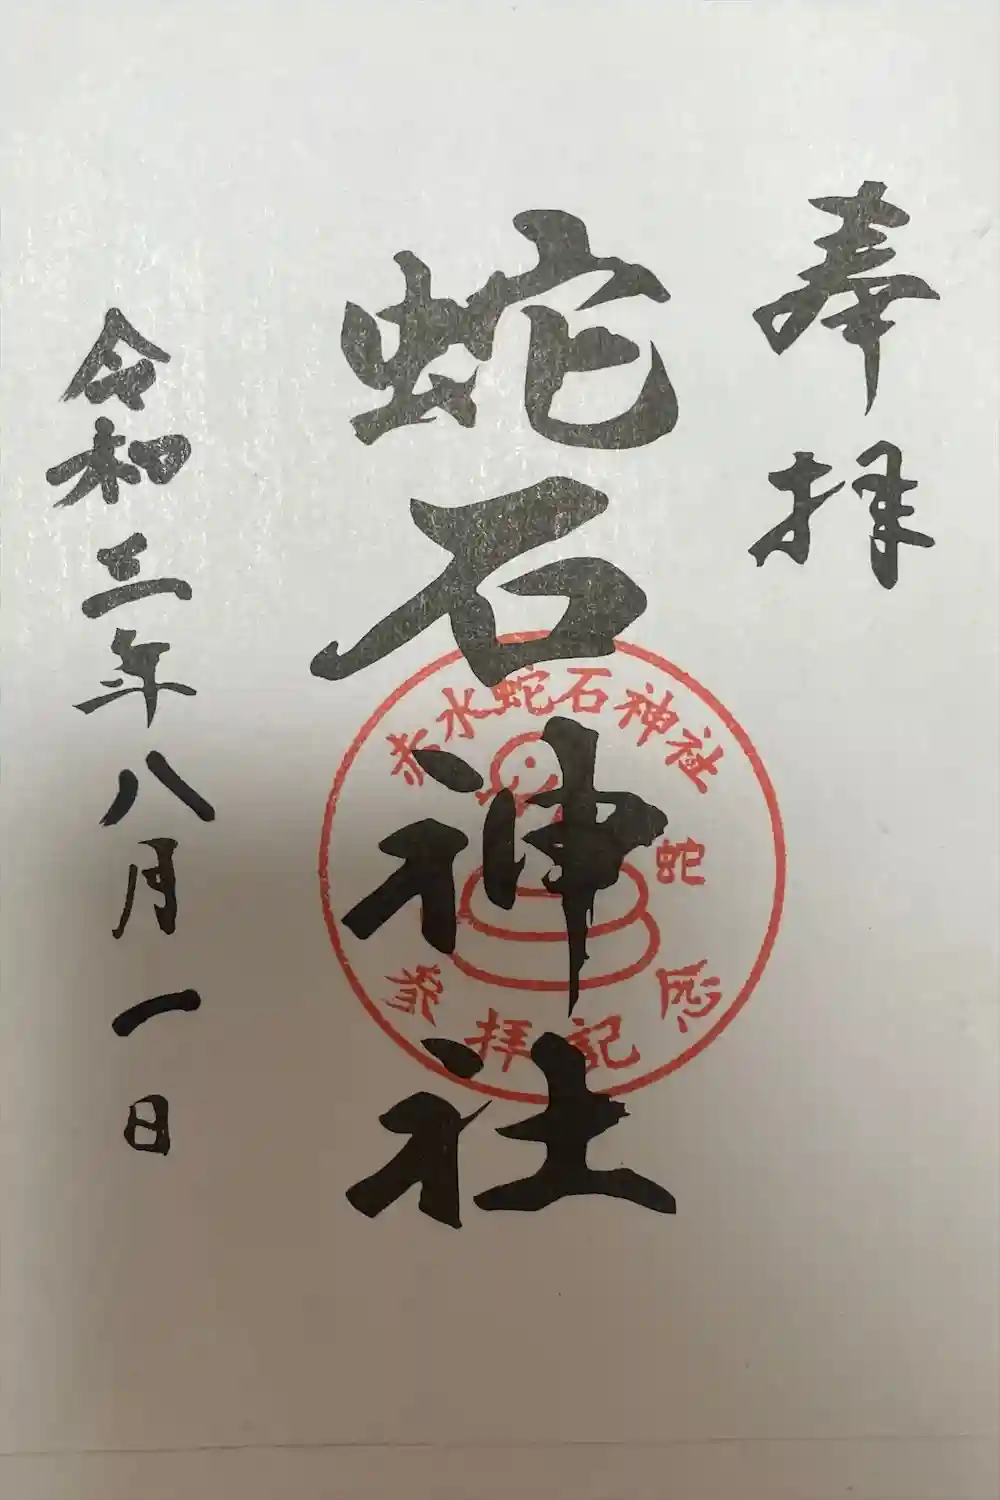 奉拝
蛇石神社
赤水蛇石神社
蛇
参拝記
令和三年八月一日